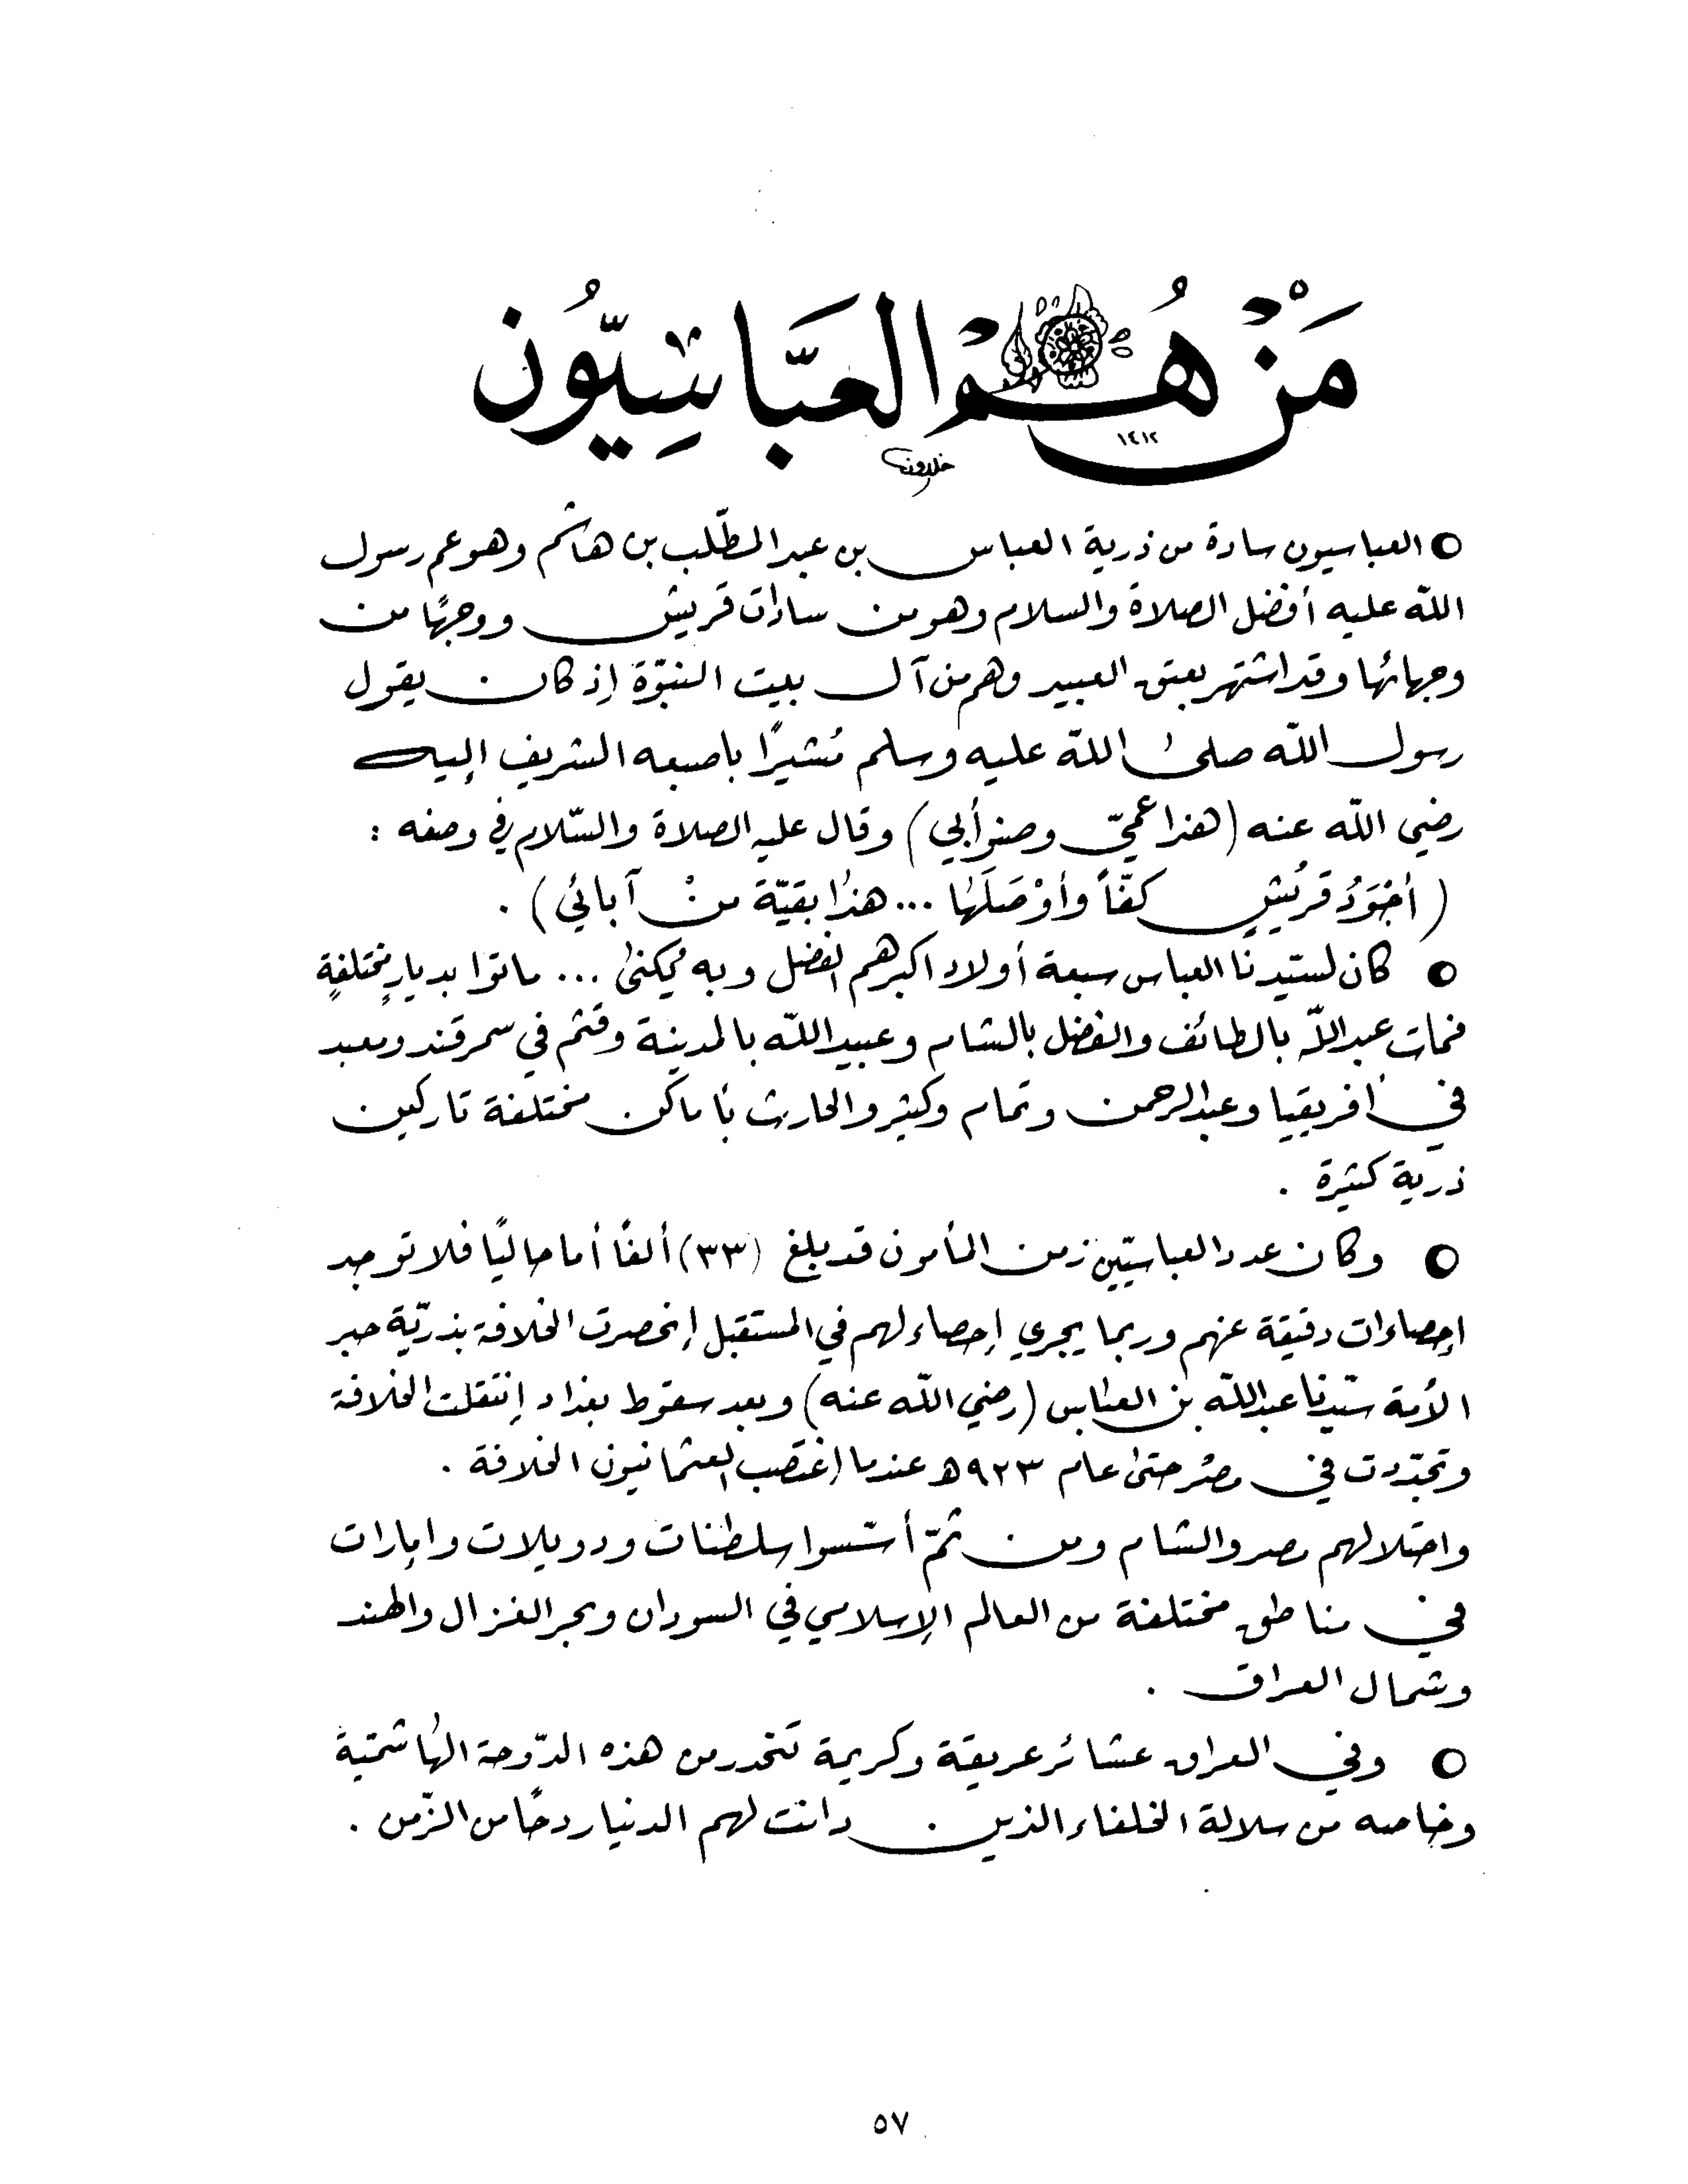 مَنْ هُمْ العَبَّاسِيُّون
١٤١٢
خلدون
○ العباسيون سادة من ذرية العباس بن عبد المطّلب بن هاشم وهو عم رسول
اللّه عليه أفضل الصلاة والسلام وهو من سادات قريش ووجهًا من
وجهائها وقد اشتهر بعتق العبيد وهم من آل بيت النبوّة إذ كان يقول
رسول اللّه صلى اللّه عليه وسلم مُشيرًا باصبعه الشريف إليه
رضي اللّه عنه (هذا عمّي وصنو أبي) وقال عليه الصلاة والسّلام في وصفه :
(أجْوَدُ قريْشٍ كفّاً وأوْصَلَها ... هذا بقيّة منْ آبائي) .
○ كان لسيّدنا العباس سبعة أولاد اكبرهم الفضل وبه يُكنى ... ماتوا بديارٍ مختلفةٍ
فمات عبد اللّه بالطائف والفضل بالشام وعبيد اللّه بالمدينة وقثم في سمرقند ومعبد
في أفريقيا وعبد الرحمن وتمام وكثير والحارث بأماكن مختلفة تاركين
ذرية كثيرة .
○ وكان عدد العباسيّين زمن المأمون قد بلغ (٣٣) ألفًا أما حاليًا فلا توجد
إحصاءات دقيقة عنهم وربما يجري إحصاء لهم في المستقبل إنحصرت الخلافة بذريّة حبر
الأمة سيّدنا عبد اللّه بن العباس (رضي اللّه عنه) وبعد سقوط بغداد إنتقلت الخلافة
وتجدّدت في مصر حتى عام ٩٢٣هـ عندما إغتصب العثمانيون الخلافة .
واحتلالهم مصر والشام ومن ثمّ أسّسوا سلطنات ودويلات وامارات
في مناطق مختلفة من العالم الإسلامي في السودان وبحر الغزال والهند
وشمال العراق .
○ وفي العراق عشائر عريقة وكريمة تنحدر من هذه الدّوحة الهاشميّة
وخاصه من سلالة الخلفاء الذين دانت لهم الدنيا ردحًا من الزّمن .
٥٧